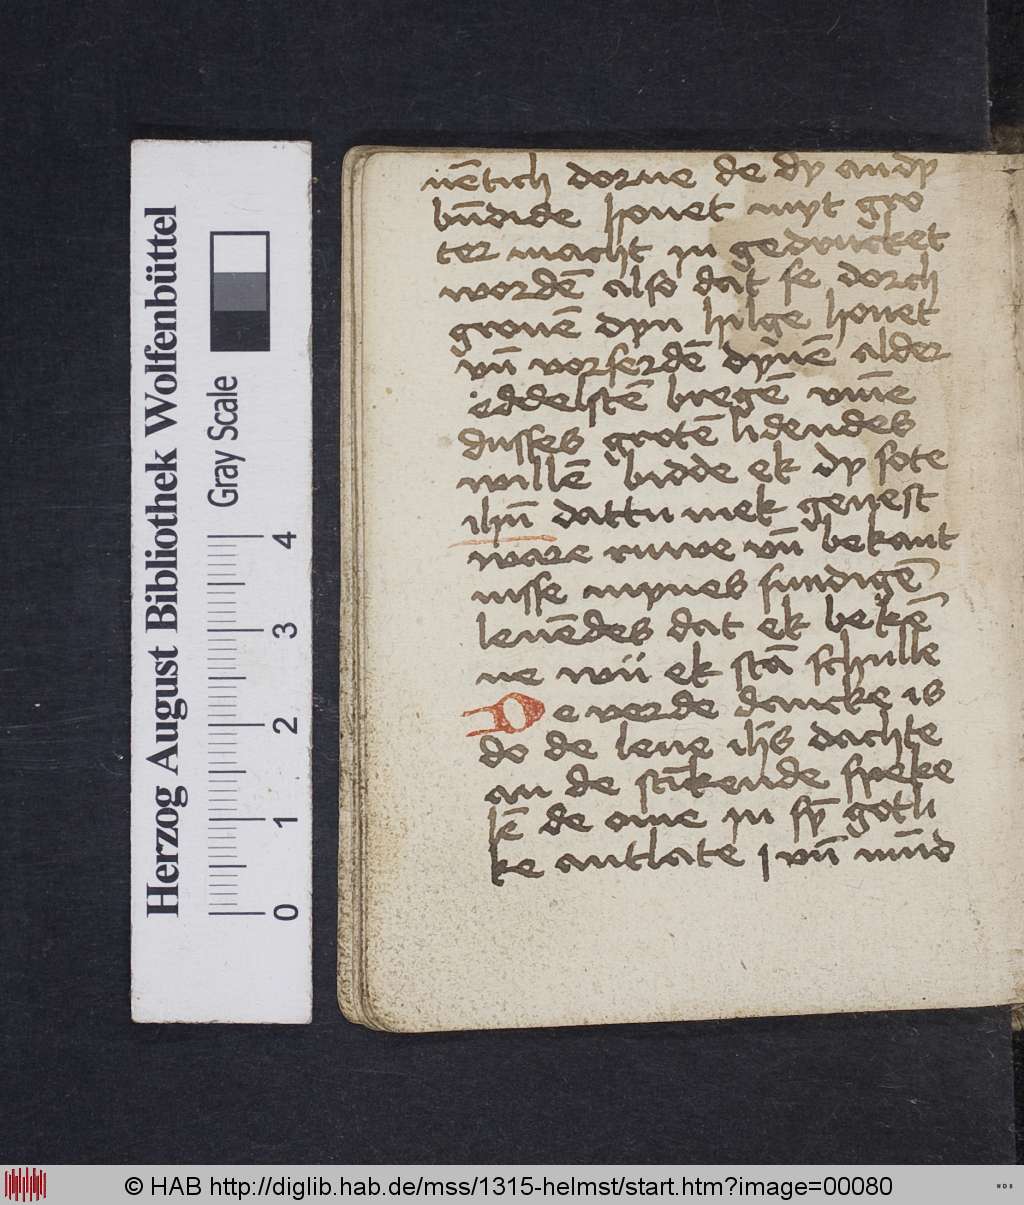 Herzog August Bibliothek Wolfenbüttel
Gray Scale
0 1 2 3 4
uētich dorne de dy an dy
hovet myt gro
ter macht in gedrucket
wordē also dat se dorch
grouē dyn hilge houet
vn̄ vorserdē dynē alder
eddelstē bregē vm̄e
dusses grotē lidendes
willē bidde ek dy sote
ihū dattu mek geuest
ware ruwe vn̄ bekant
nisse mynes sundigē
leuēdes dat ek bekē
ne wu ek stā schulle
De verde dancke is
do de leue ihs dachte
an de stīkende speke
lē de ome in sȳ gotli
ke antlate | vn̄ mūd
© HAB http://diglib.hab.de/mss/1315-helmst/start.htm?image=00080